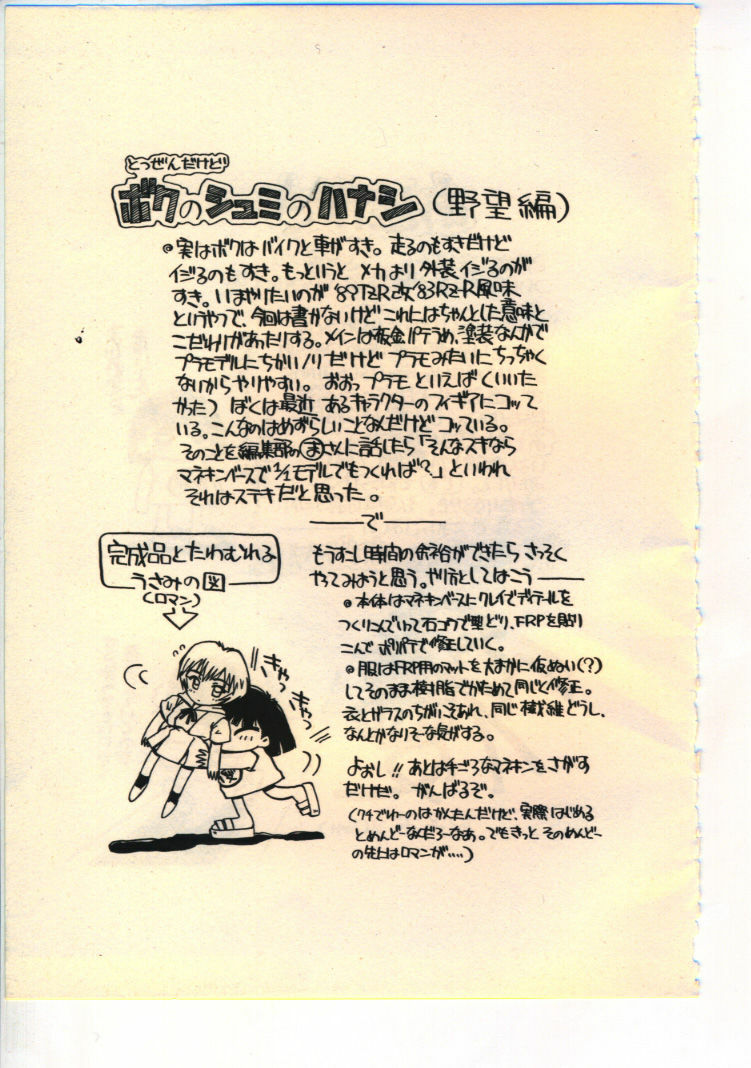 とつぜんだけど
ボクのシュミのハナシ(野望編)
◉実はボクはバイクと車がすき。走るのもすきだけど
イジるのもすき。もっというと メカより外装イジるのが
すき。いまやりたいのが '89TZR改'83RZ-R風味
というやつで、今回は書かないけど これにはちゃんとした意味と
こだわりがあったりする。メインは板金パテうめ、塗装なんかで
プラモデルにちかいノリだけど プラモみたいにちっちゃく
ないからやりやすい。おおっプラモといえば(いいた
かった) ぼくは最近 あるキャラクターのフィギアにコッて
いる。こんなのはめずらしいことなんだけどコッている。
そのことを編集部のまさんに話したら「そんなスキなら
マネキンベースで1/1モデルでもつくれば?」といわれ
それはステキだと思った。
――で――
もうすこし時間の余裕ができたら さっそく
やってみようと思う。やり方としてはこう――
◉本体はマネキンベースにクレイでディテールを
つくりこんでいって石コウで型どり、FRPを貼り
こんで ポリパテで修正していく。
◉服はFRP用のマットを大まかに仮ぬい(?)
してそのまま樹脂でかためて同じく修正。
衣とガラスのちがいこそあれ、同じ繊維どうし、
なんとかなりそーな気がする。
よおし!! あとは手ごろなマネキンをさがす
だけだ。がんばるぞ。
(クチでゆーのはかんたんだけど、実際はじめる
とめんどーなんだろーなあ。でもきっと そのめんどー
の先にはロマンが....)
完成品とたわむれる
うさみの図
(ロマン)
きゃっ
きゃっ